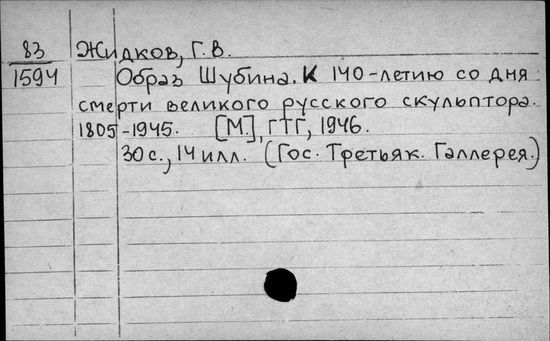 83 Жидков, Г.В.
1594 Образ Шубина. К 140-летию со дня
смерти великого русского скульптора.
1805-1945. [М.], ГТГ, 1946.
30 с., 14 илл. (Гос. Третьяк. Галлерея.)